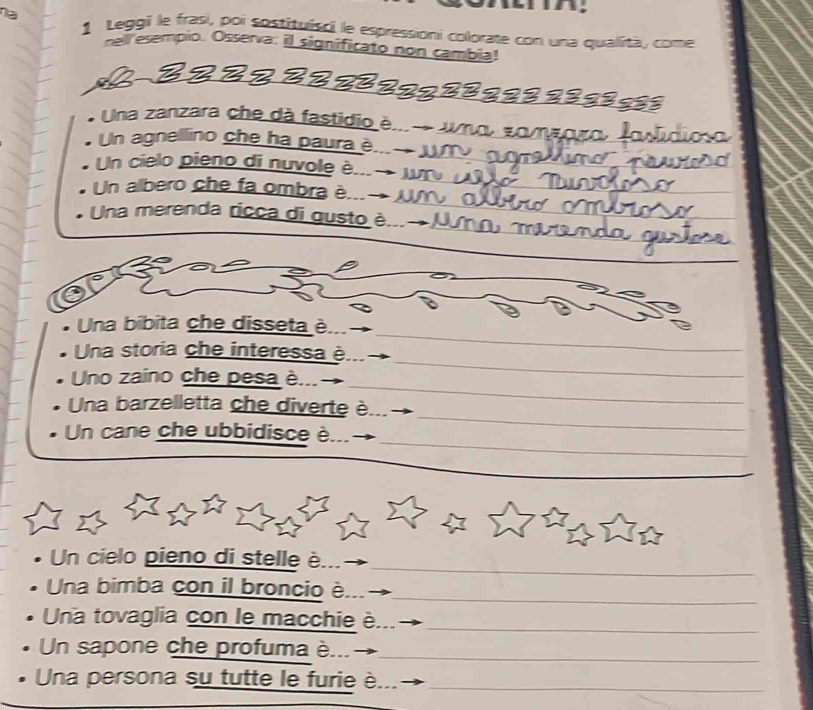 na
1 Leggi le frasi, poi sostituisci le espressioni colorate con una qualità, come
nell'esempio. Osserva: il significato non cambia!
• Una zanzara che dà fastidio è... → una zanzara fastidiosa
• Un agnellino che ha paura è... → un agnellino pauroso
• Un cielo pieno di nuvole è... → un cielo nuvoloso
• Un albero che fa ombra è... → un albero ombroso
• Una merenda ricca di gusto è... → una merenda gustosa
• Una bibita che disseta è... →
• Una storia che interessa è... →
• Uno zaino che pesa è... →
• Una barzelletta che diverte è... →
• Un cane che ubbidisce è... →
• Un cielo pieno di stelle è... →
• Una bimba con il broncio è... →
• Una tovaglia con le macchie è... →
• Un sapone che profuma è... →
• Una persona su tutte le furie è... →